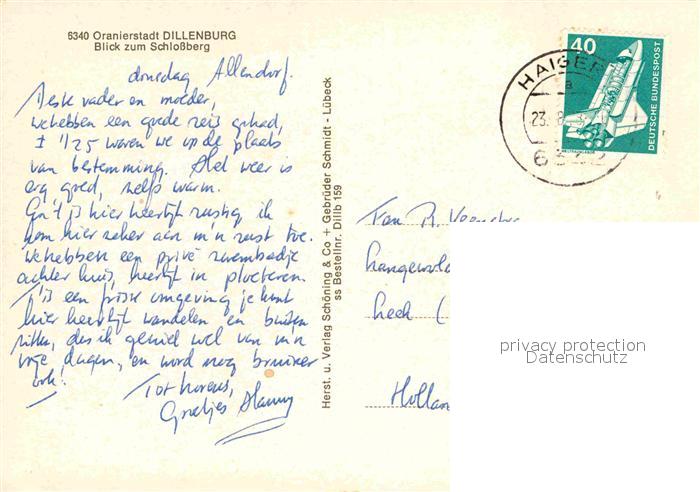 6340 Oranierstadt DILLENBURG
Blick zum Schloßberg
donsdag Allendorf.
Beste vader en moeder,
we hebben een goede reis gehad,
± 1.25 waren we op de plaats
van bestemming. Het weer is
erg goed, zelfs warm.
En 't is hier heerlijk rustig ik
kom hier zeker aan m'n rust toe.
We hebben een privé zwembadje
achter huis, heerlijk in ploeteren.
't is een frisse omgeving je kunt
hier heerlijk wandelen en buiten
zitten, dus ik geniet wel van m'n
vrije dagen, en word nog bruiner
ook!
Tot horens,
Groetjes
Herst. u. Verlag Schöning & Co + Gebrüder Schmidt - Lübeck
ss Bestellnr. Dillb 159
HAIGER
a
23.
40
DEUTSCHE BUNDESPOST
Fam
Leek (
Hollan
privacy protection
Datenschutz